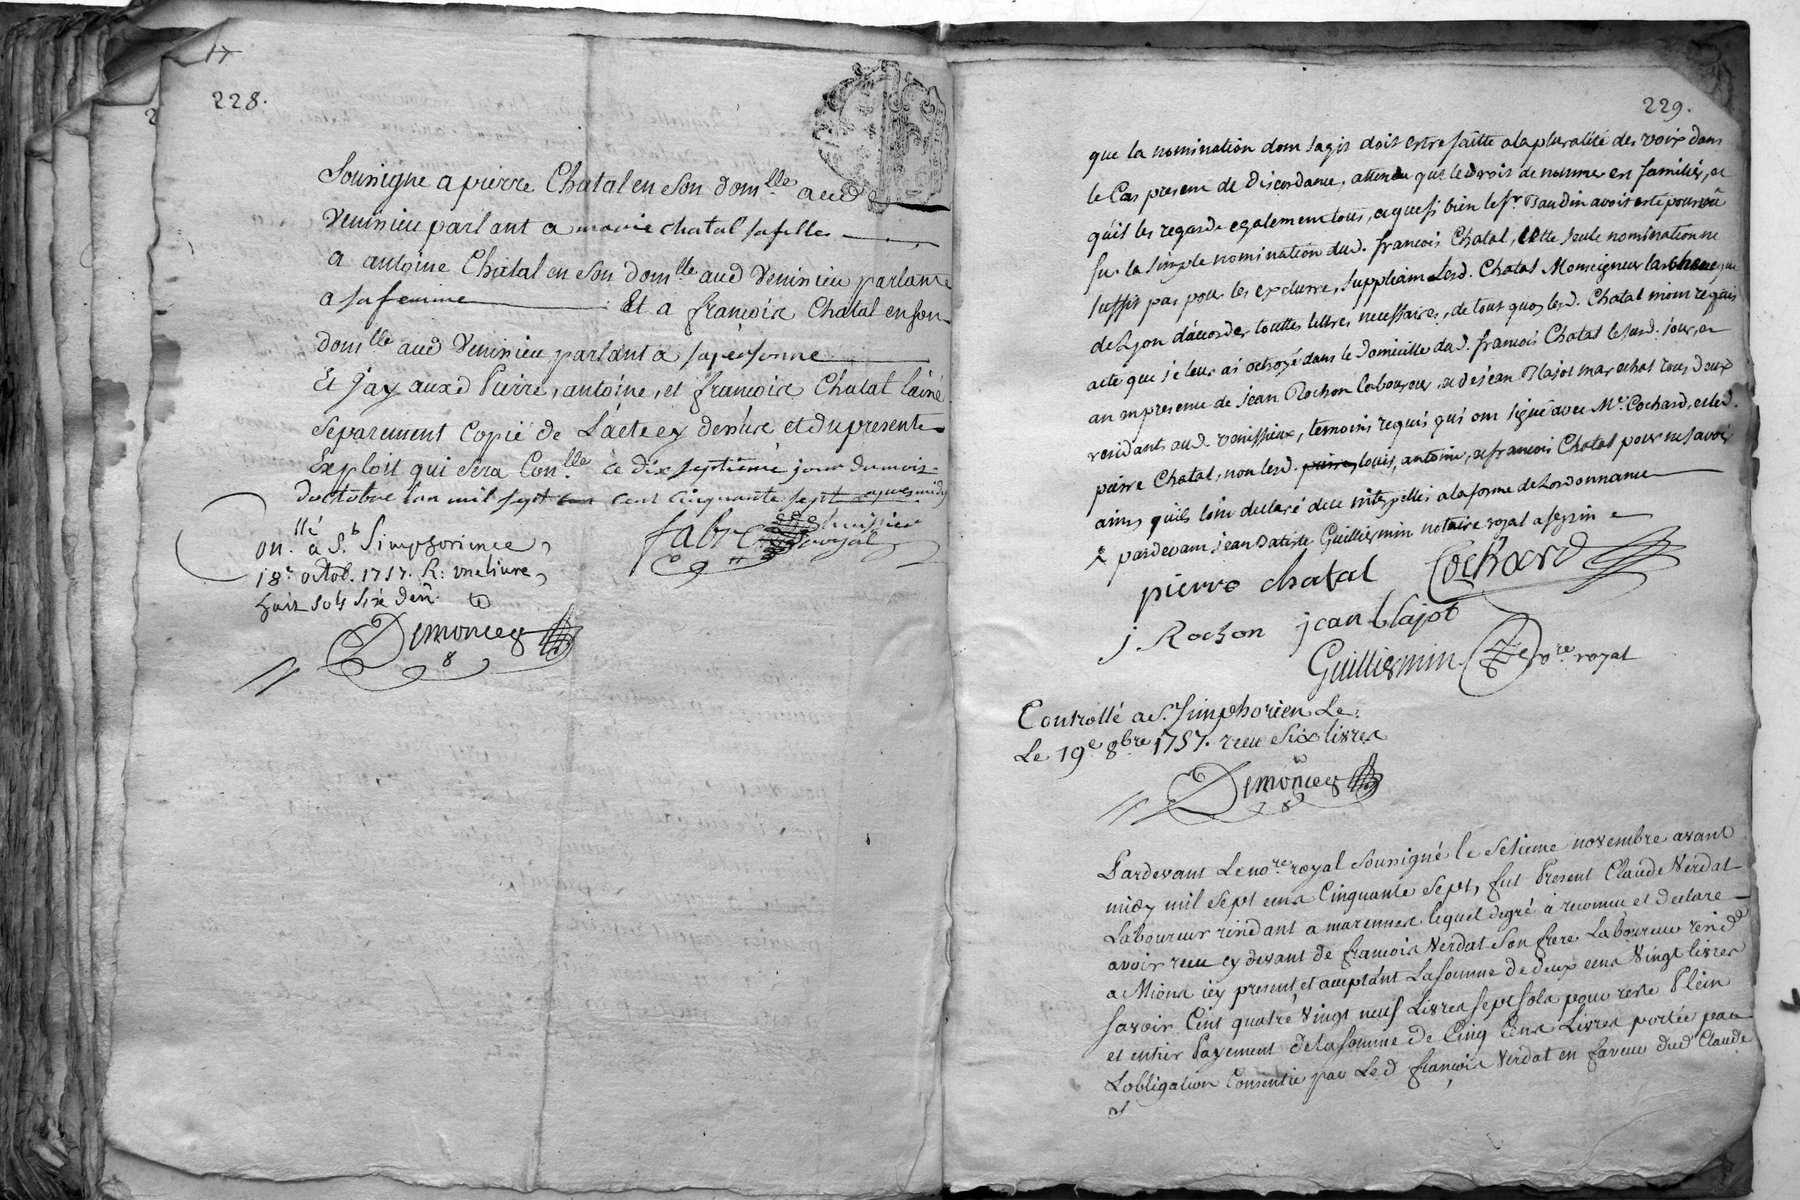 228.
Soussigne a pierre Chatal en son dom.lle aud
Venissieu parlant a marie chatal sa fille
a antoine Chatal en son dom.lle aud Venissieu parlant
a sa femme Et a francois Chatal en son
dom.lle aud Venissieu parlant a sa personne
Et j'ay auxd Pierre, antoine, et francois Chatal laine
Separement Copié de L'acte cy dessus et du presente
Exploit qui sera Con.lle ce dix septieme jour du mois
doctobre lan mil sept cent cinquante sept apres midy
fabre huissier
royal
on.llé a S.t Simphorien ce
18.e octob. 1757. R. une livre
huit sols six den.
Demonceg
229.
que la nomination dont sagit doit estre faitte a la pluralité des voix dans
le Cas present de discordance, attendu que le droit de nommer est familier, et
quil les regarde egalement tous, et que si bien le Sr. Baudin avoit esté pourvû
sur la simple nomination dud. francois Chatal, cette seule nomination ne
suffit pas pour les exclurre, Suppliant Lesd. Chatal Monseigneur Larcheveque
de Lyon d'accorder touttes lettres necessaires, de tout quoy lesd. Chatal mont requis
acte que je leur ai octroyé dans le domicille dud. francois Chatal lesusd. jour, et
an en presence de jean Rochon laboureur, et de jean Blajot marechal tous deux
residants aud. venissieux, temoins requis qui ont signé avec Me. Cochard, et led.
pierre Chatal, non lesd. pierre, louis, antoine, et francois Chatal pour ne savoir
ainsy quils lont declaré de ce interpellés a la forme de Lordonnance
& pardevant jean Batiste Guilliermin notaire royal a seyzin
pierre chatal Cochard
j Rochon jean blajot
Guilliermin nre royal
Controllé a St. Simphorien Le
Le 19e 8bre 1757. receu Six livres
Demonceg
Pardevant Le no.re royal soussigné le setieme novembre avant
midy mil sept cens Cinquante sept, fut Present Claude Verdat
Laboureur residant a marennes lequel degré à reconnu et declare
avoir receu cy devant de francois Verdat Son frere Laboureur resid.
a Mions icy present et acceptant La somme de deux cens Vingt livres
savoir Cent quatre Vingt neuf Livres sept sols pour reste Plein
et entier Payement de la somme de Cinq Cens Livres portée par
Lobligation Consentie par Le d francois Verdat en faveur dud Claude